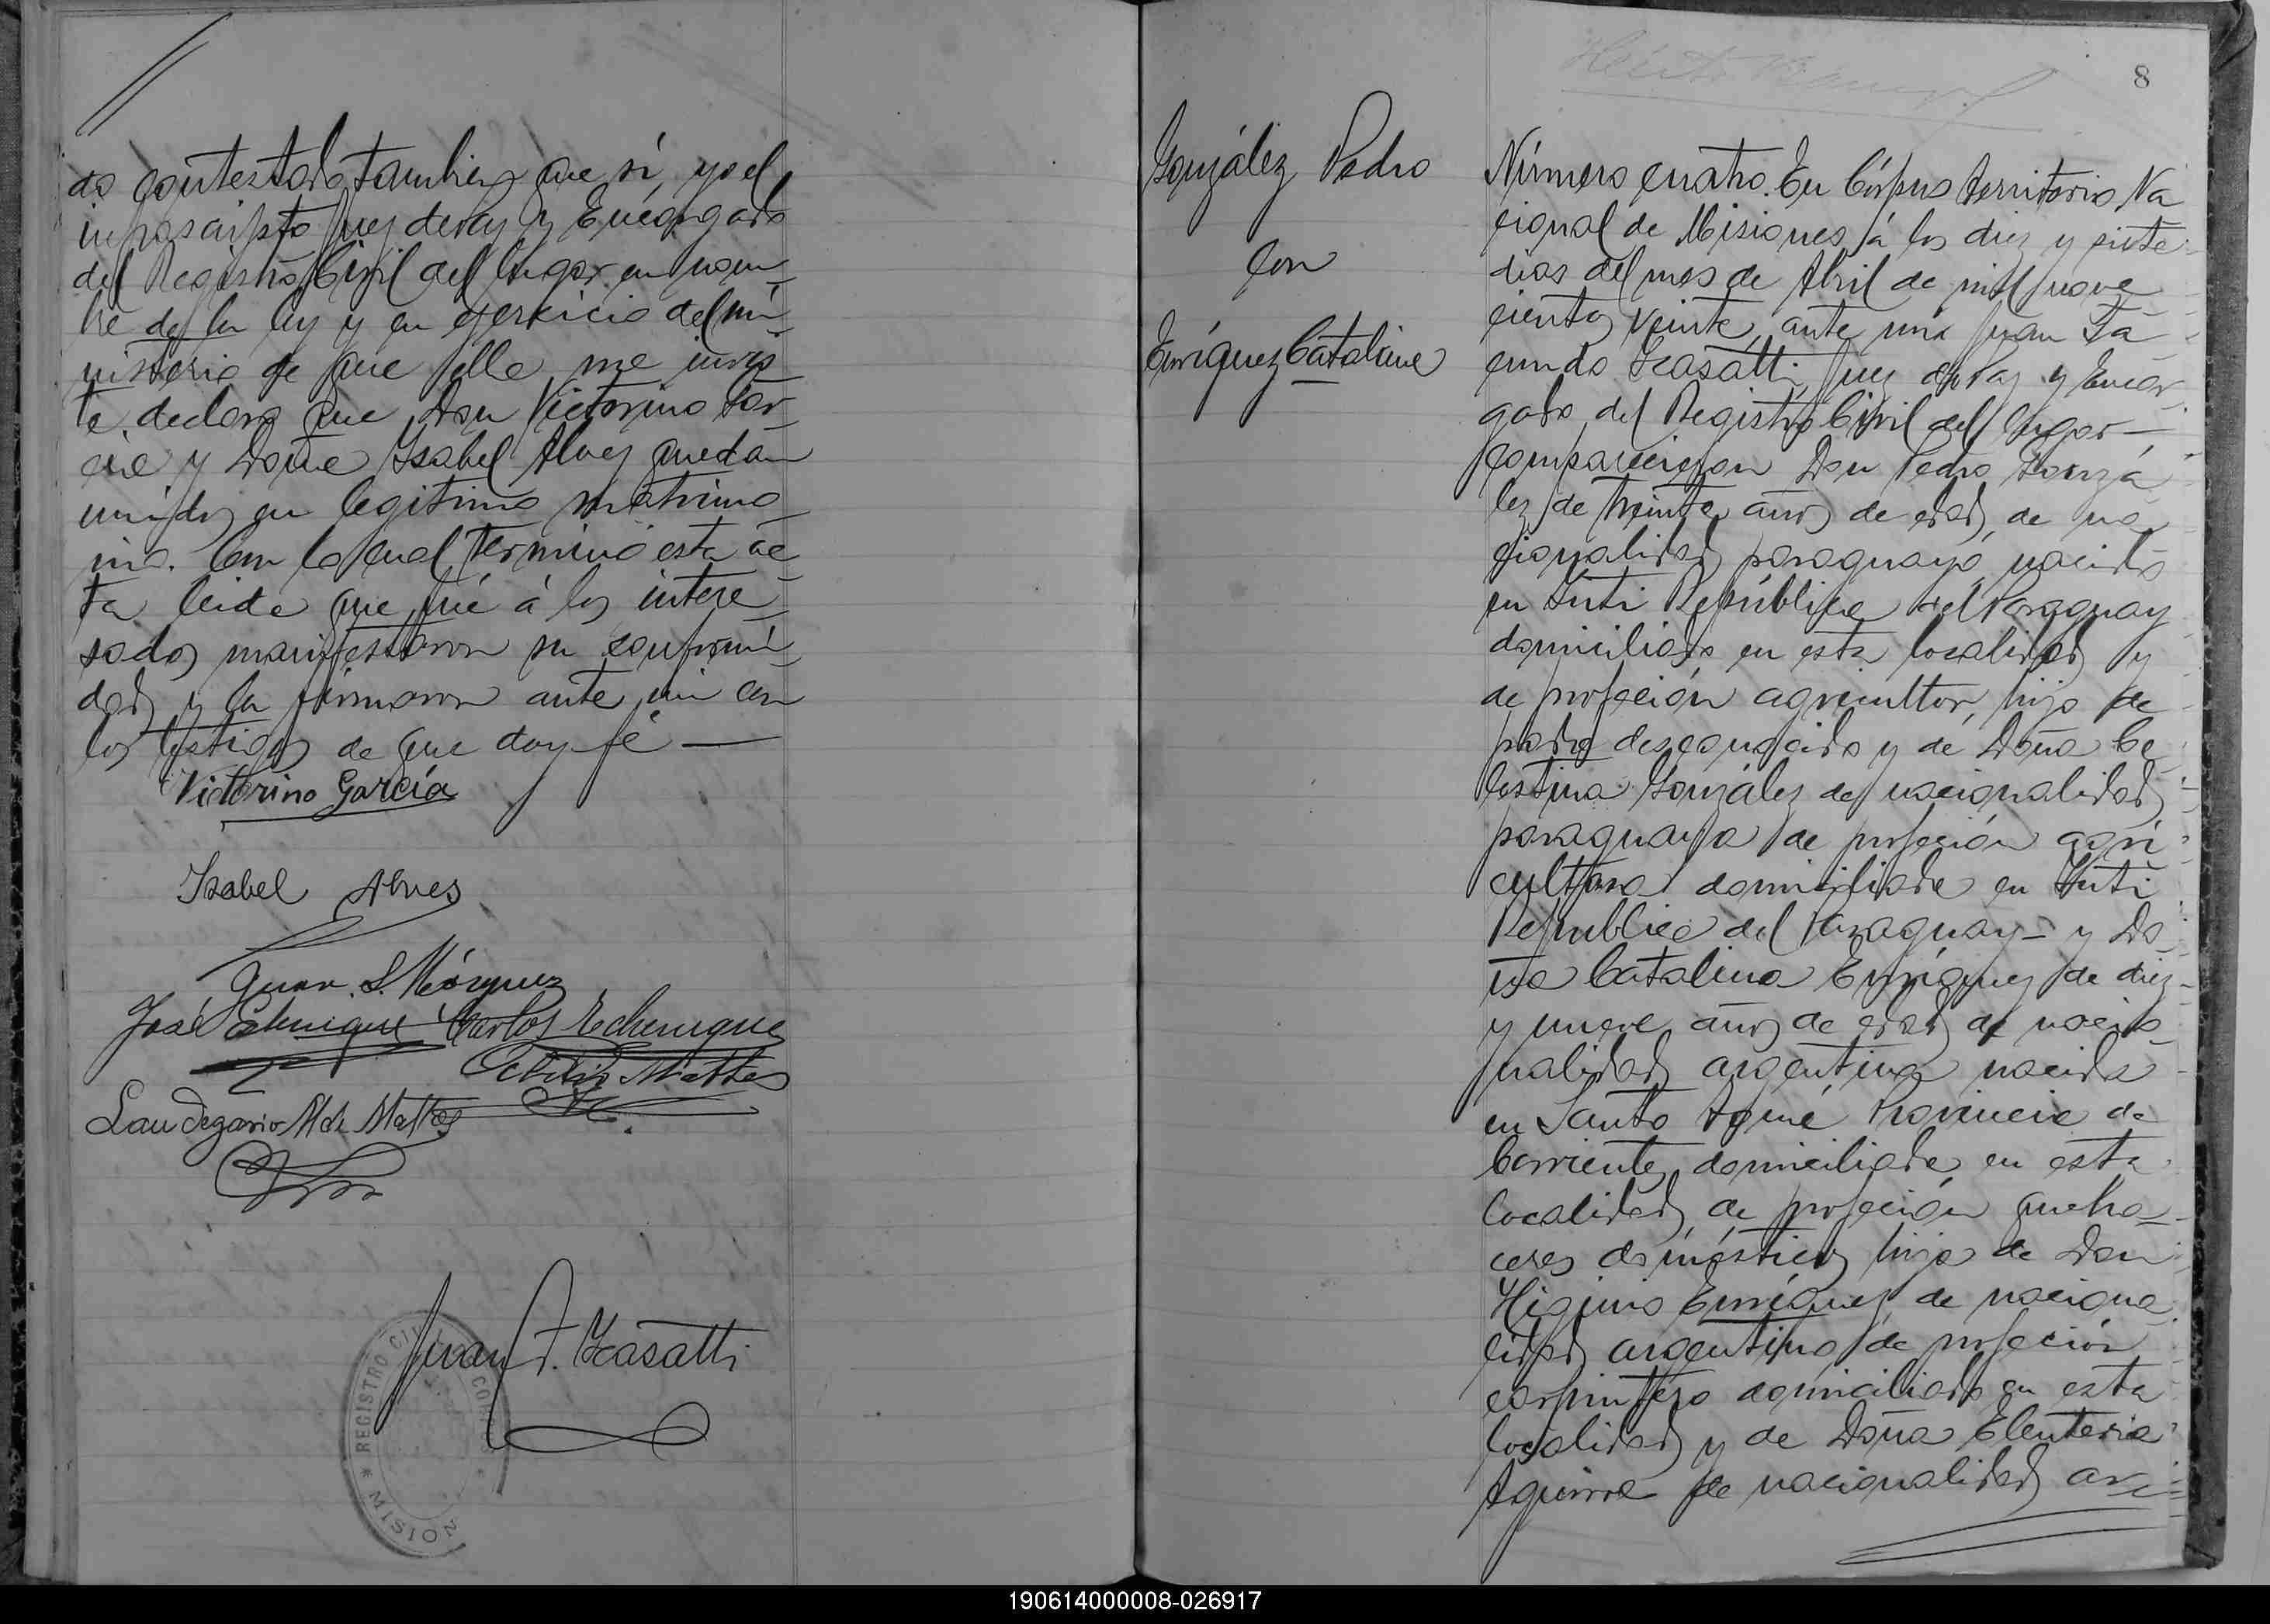 do contestado tambien que sí, yo el
infrascripto Juez de Paz y Encargado
del Registro Civil del lugar en nom_
bre de la ley y en ejercicio del mi_
nisterio de que ella me invis_
te declaro que Don Victorino Gar_
cia y Doña Isabel Alvez quedan
unidos en legitimo matrimo_
nio. Con lo cual terminó esta ac_
ta leida que fué á los intere_
sados manifestaron su conformi_
dad y la firmaron ante mi con
los testigos de que doy fé —
Victorino García
Isabel Alves
Juan. S. Márquez
José Echenique Carlos Echenique
Mattos
Laudegario M de Mattos
Juan F. Casatti
REGISTRO CIVIL
MISION
8
González Pedro
con
Enríquez Catalina
Número cuatro. En Córpus territorio Na
cional de Misiones á los diez y siete
dias del mes de Abril de mil nove
cientos veinte, ante mi Juan Fa_
cundo Casatti, Juez de Paz y Encar_
gado del Registro Civil del lugar —
comparecieron Don Pedro Gonzá
lez de treinta años de edad, de na_
cionalidad paraguayo, nacido
en Yuti República del Paraguay
domiciliado en esta localidad y
de profeción agricultor, hijo de
padre desconocido y de Doña Ce_
lestina González de nacionalidad
paraguaya de profeción agri
cultora domiciliada en Yuti
Republica del Paraguay — y Do_
ña Catalina Enríquez de diez
y nueve años de edad de nacio_
nalidad argentina nacida
en Santo Tomé Provincia de
Corrientes domiciliada en esta
localidad, de profeción queha_
ceres domésticos hija de Don
Higinio Enríquez de naciona_
lidad argentino de profeción
carpintero domiciliado en esta
localidad y de Doña Eleuteria
Aguirre de nacionalidad ar_
190614000008-026917